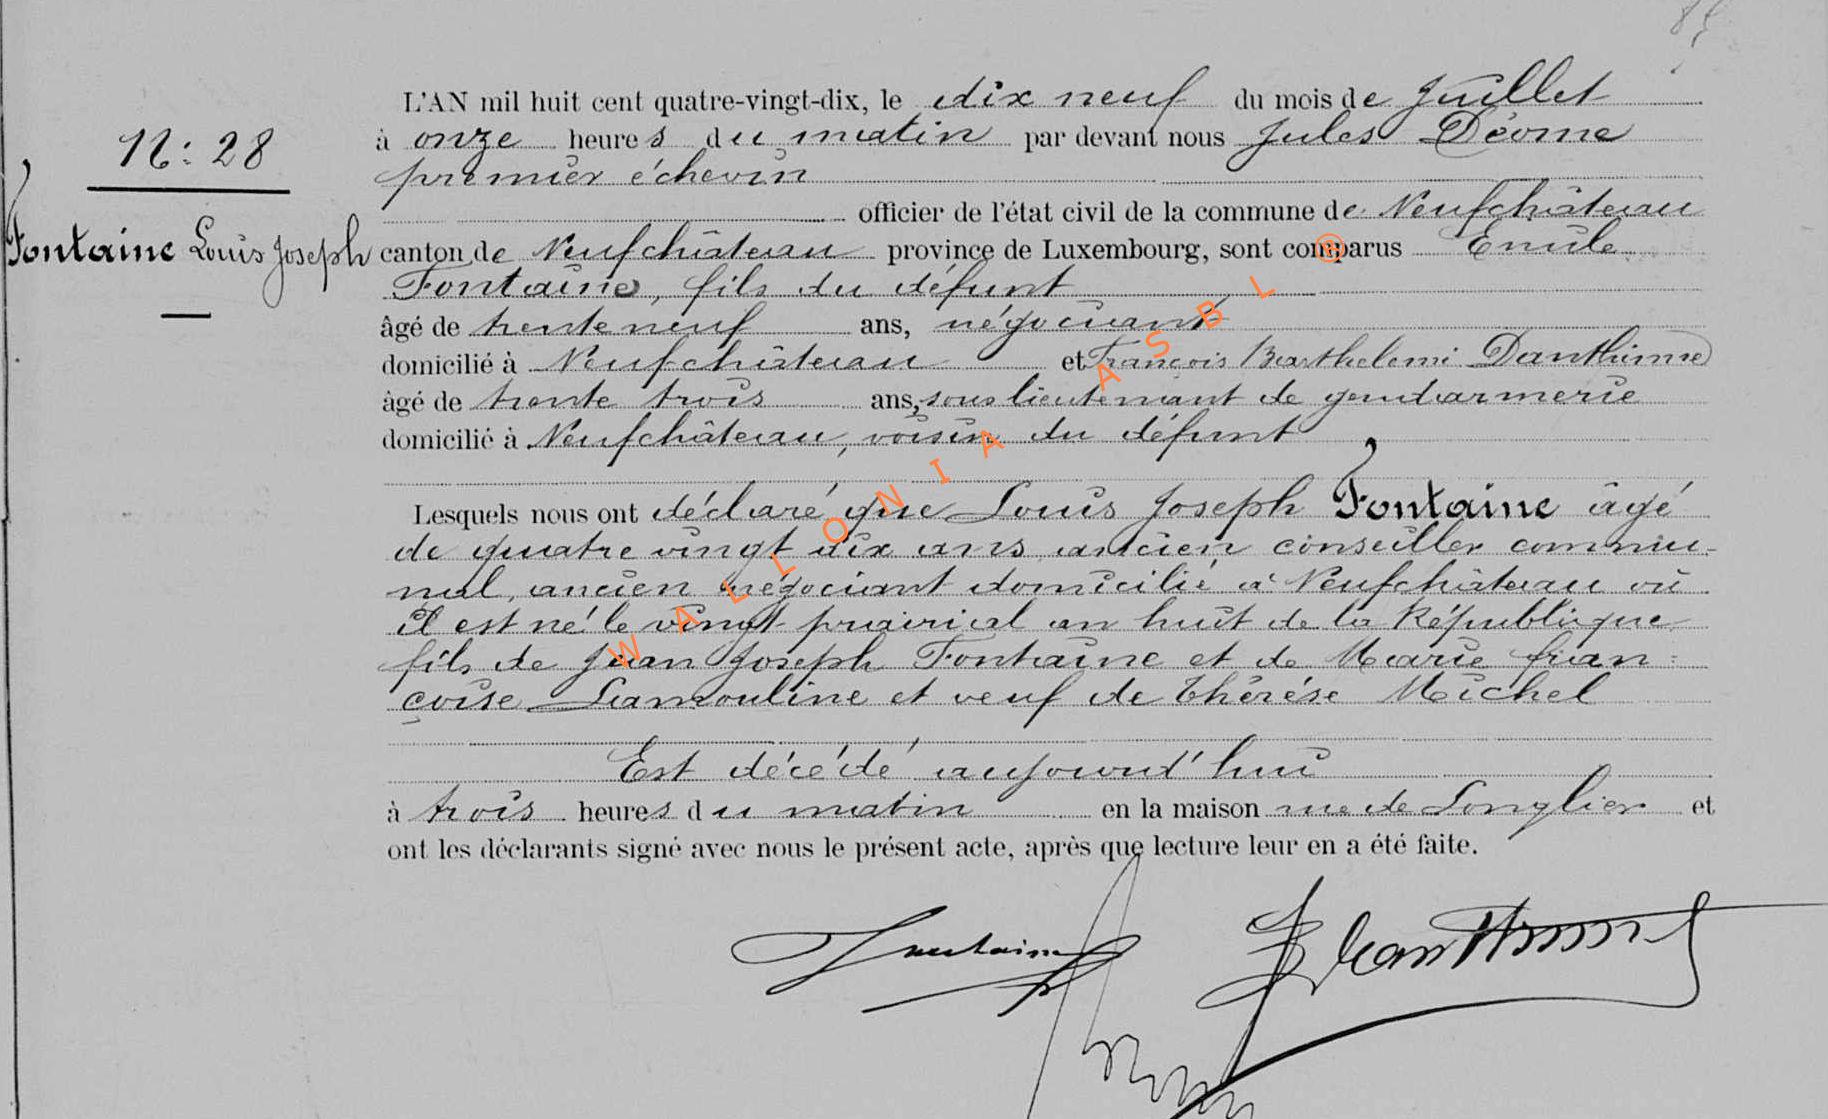 L'AN mil huit cent quatre-vingt-dix, le dix neuf du mois de Juillet
à onze heures du matin par devant nous Jules Déome
premier échevin
officier de l'état civil de la commune de Neufchâteau
N: 28
Fontaine Louis Joseph
canton de Neufchâteau province de Luxembourg, sont comparus Emile
Fontaine, fils du défunt
âgé de trente neuf ans, négociant
domicilié à Neufchâteau et François Barthelemi Danthinne
âgé de trente trois ans, sous lieutenant de gendarmerie
domicilié à Neufchâteau, voisin du défunt
Lesquels nous ont déclaré que Louis Joseph Fontaine âgé
de quatre vingt dix ans ancien conseiller commu-
nal, ancien négociant domicilié à Neufchâteau où
il est né le vingt prairial an huit de la République
fils de Jean Joseph Fontaine et de Marie fran=
çoise Lamouline et veuf de Thérése Michel
Est décédé aujourd'hui
à trois heures du matin en la maison rue de Longlier et
ont les déclarants signé avec nous le présent acte, après que lecture leur en a été faite.
Fontaine
WALLONIA ASBL ®